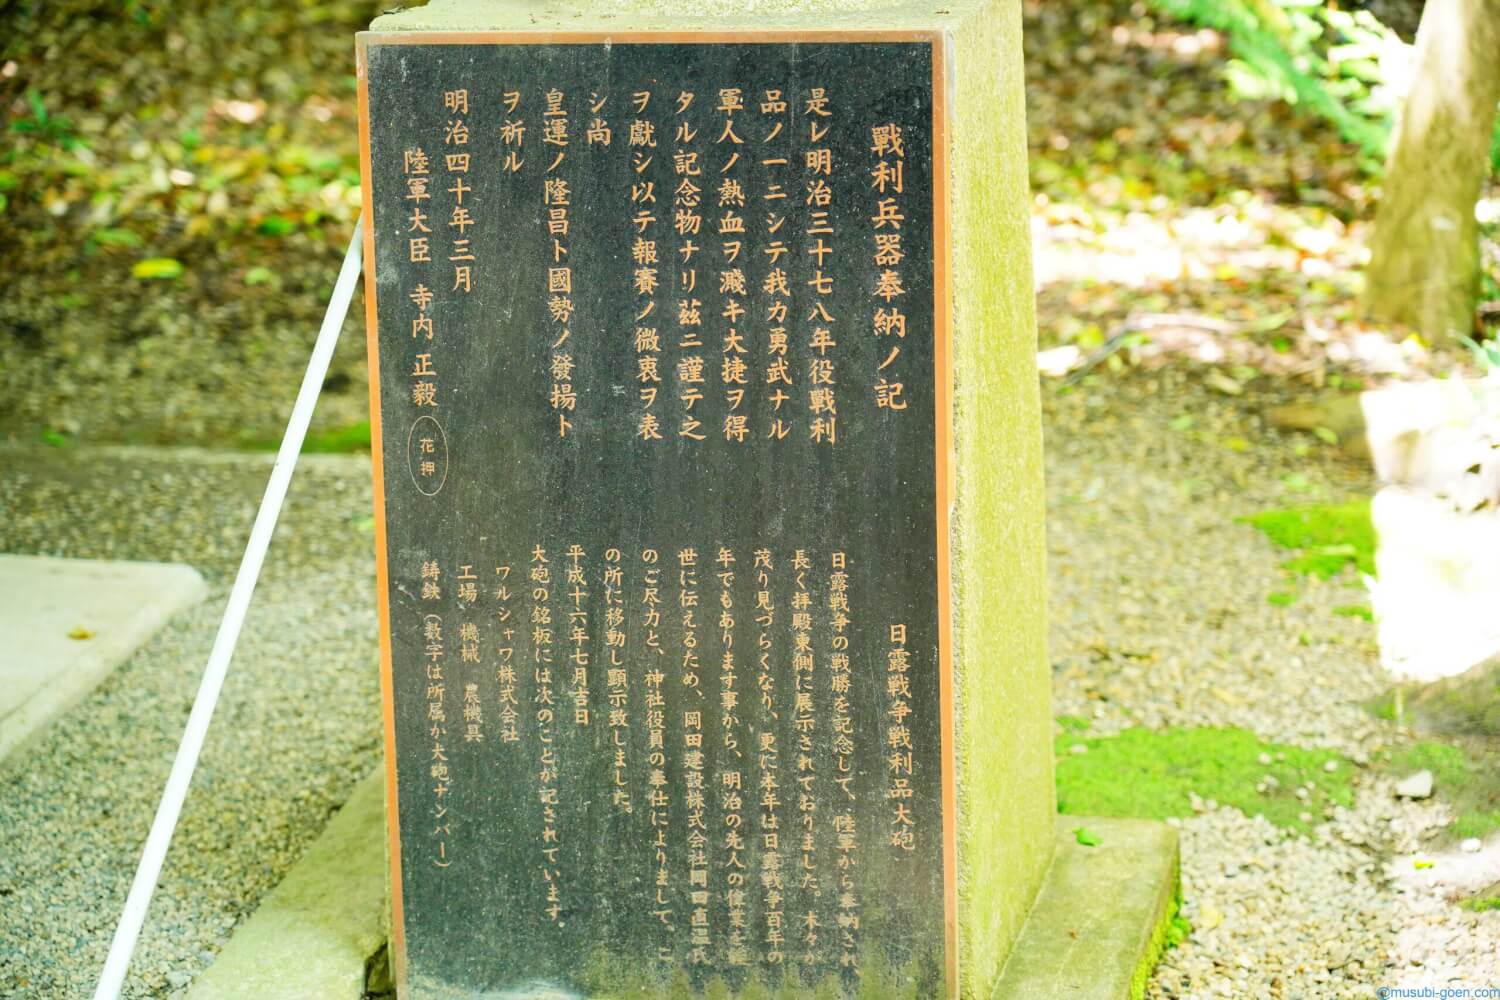 戰利兵器奉納ノ記
是レ明治三十七八年役戰利
品ノ一ニシテ我カ勇武ナル
軍人ノ熱血ヲ濺キ大捷ヲ得
タル記念物ナリ茲ニ謹テ之
ヲ獻シ以テ報賽ノ微衷ヲ表
シ尚
皇運ノ隆昌ト國勢ノ發揚ト
ヲ祈ル
明治四十年三月
陸軍大臣 寺内正毅 花押
日露戦争戦利品大砲
日露戦争の戦勝を記念して、陸軍から奉納され、
長く拝殿東側に展示されておりました。木々が
茂り見づらくなり、更に本年は日露戦争百年の
年でもあります事から、明治の先人の偉業を
世に伝えるため、岡田建設株式会社岡田氏
のご尽力と、神社役員の奉仕によりまして、こ
の所に移動し顕示致しました。
平成十六年七月吉日
大砲の銘板には次のことが記されています。
ワルシャワ株式会社
工場 機械 農機具
鋳鉄(数字は所属か大砲ナンバー)
@musubi-goen.com